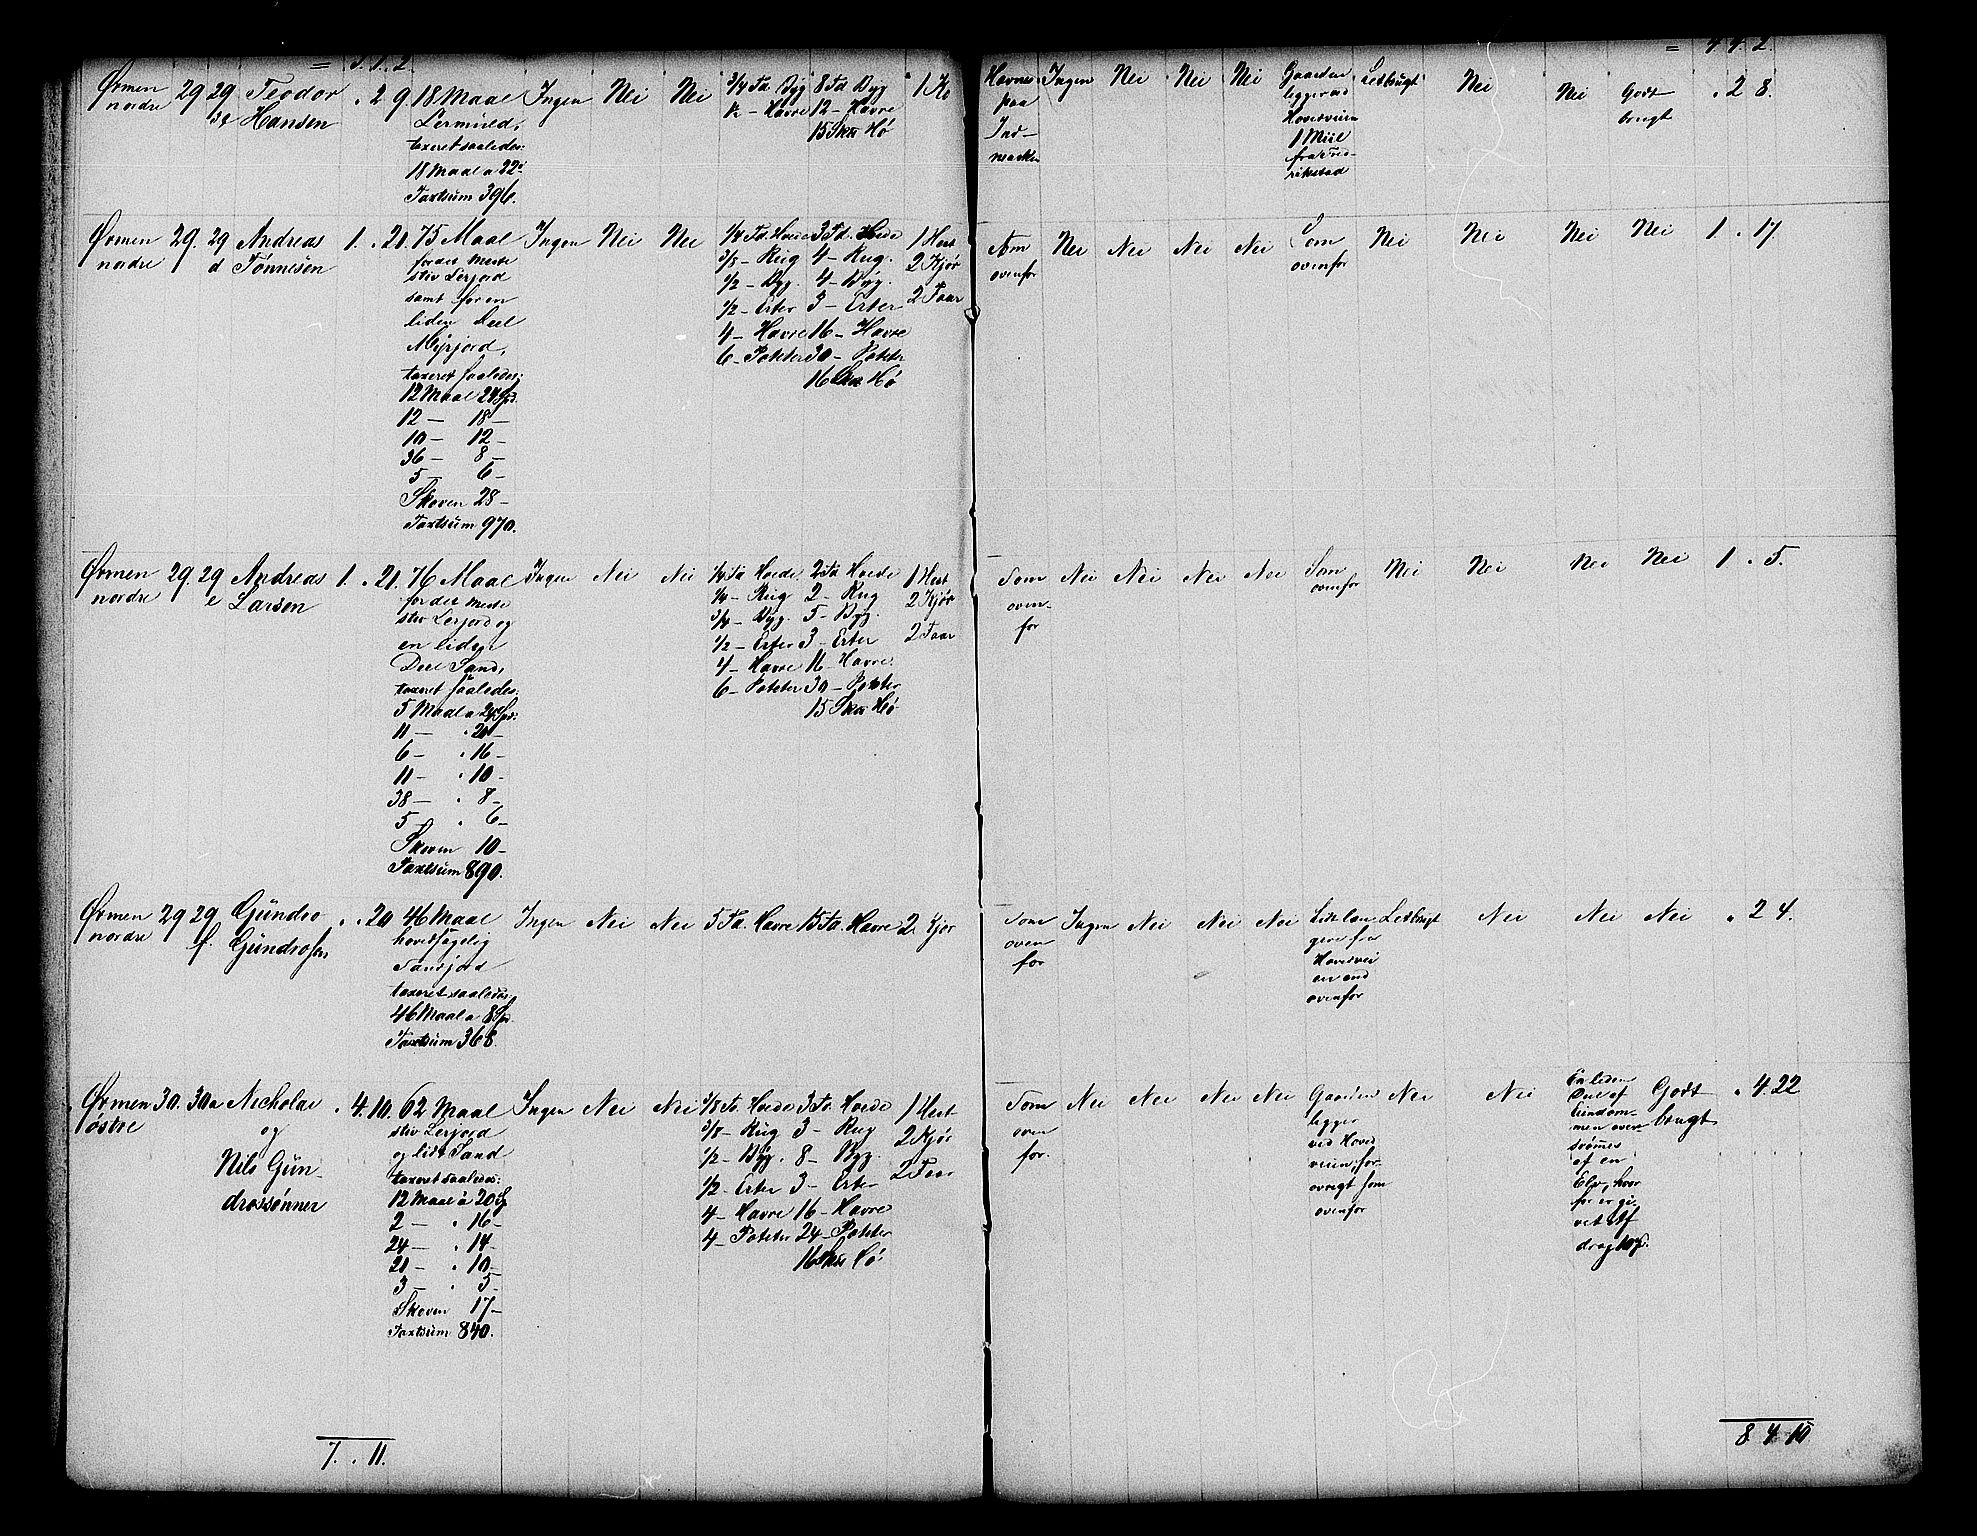 = 3. 1. 2. = 4 4. 2.
Ørmen nordre 29 29 Teodor Hansen . 2 9 18 Maal Ingen Nei Nei 3/4 Td. Byg 8 Td Byg 1 Ko Havne Ingen Nei Nei Nei Gaarden Letbrugt Nei Nei Godt . 2 8.
½ - Havre 12 - Havre paa ligger ved brugt
Lermuld, 15 Sk℔ Hø Ind- Hovedveien
taxeret saaledes: marken 1 Miil
18 Maal a 22 fra Fred-
Taxtsum 396. rikstad
Ørmen 29. 29 Andreas 1. . 21. 75 Maal Ingen Nei Nei ¼ Td. Hvede 3 Td. Hvede 1 Hest Som Nei Nei Nei Nei Som Nei Nei Nei Nei 1 . 17.
nordre d Tønnesen for det meste 3/8 - Rug 4 - Rug. 2 Kjør ovenfor ovenfor
stiv Lerjord ½ - Byg. 4 - Byg. 2 Faar
samt for en ½ - Erter 3 - Erter
liden Deel 4 - Havre 16 - Havre
Myrjord, 6 - Poteter 30 - Poteter
taxeret saaledes: 16 Sk℔ Hø
12 Maal 24 Spd.
12 — 18 —
10 — 12 —
36 — 8 —
5 — 6 —
Skoven 28 —
Taxtsum 970.
Ørmen 29. 29 Andreas 1. . 21. 76 Maal Ingen Nei Nei ¼ Td Hvede 2 Td Hvede 1 Hest Som Nei Nei Nei Nei Som Nei Nei Nei Nei 1 . 5.
nordre e Larsen for det meste ¼ - Rug 2 - Rug 2 Kjør oven- ovenfor
stiv Lerjord og 3/4 - Byg. 5 - Byg. 2 Faar for
en liden ½ - Erter 3 - Erter
Deel Sand, 4 - Havre 16 - Havre.
taxeret saaledes: 6 - Poteter 30 - Poteter
5 Maal a 24 Spd: 15 Sk℔ Hø
11 — . 20 —
6 — . 16 —
11 — . 10 —
38 — . 8 —
5 . 6 —
Skoven 10 —
Taxtsum 890.
Ørmen 29 29 Gündro . . 20 46 Maal Ingen Nei Nei 5 Td. Havre 15 Td. Havre 2. Kjør Som Ingen Nei Nei Nei Lidt læn Letbrugt Nei Nei Nei . 2 4.
nordre f. Gündrosen hovedsagelig oven gere fra
Sandjord for Hovedvei
taxeret saaledes en end
46 Maal a 8 Spd. ovenfor
Taxtsum 368.
Ørmen 30. 30a Nicholai . 4. 10. 62 Maal Ingen Nei Nei 3/8 Td. Hvede 3 Td. Hvede 1 Hest Som Nei Nei Nei Nei Gaarden Nei Nei En liden Godt . 4 22
østre og stiv Lerjord 3/8 - Rug 3 - Rug 2 Kjør oven ligger Deel af brugt
Nils Gün- og lidt Sand ½ - Byg. 8 - Byg. 2 Faar for. ved Hoved Eiendom-
drossønner taxeret saaledes: ½ - Erter 3 - Erter veien, for men over-
12 Maal à 20 Sp 4 - Havre 16 - Havre øvrigt som svømmes
2 — . 16 — 4 - Poteter 24 - Poteter ovenfor af en
24 — . 14 — 16 Sk℔ Hø Elv, hvor
21 — . 10 — for er gi-
3 — . 5 — vet Af
Skoven 17 — drag 10
Taxtsum 840.
7. . 11. 8 4 10